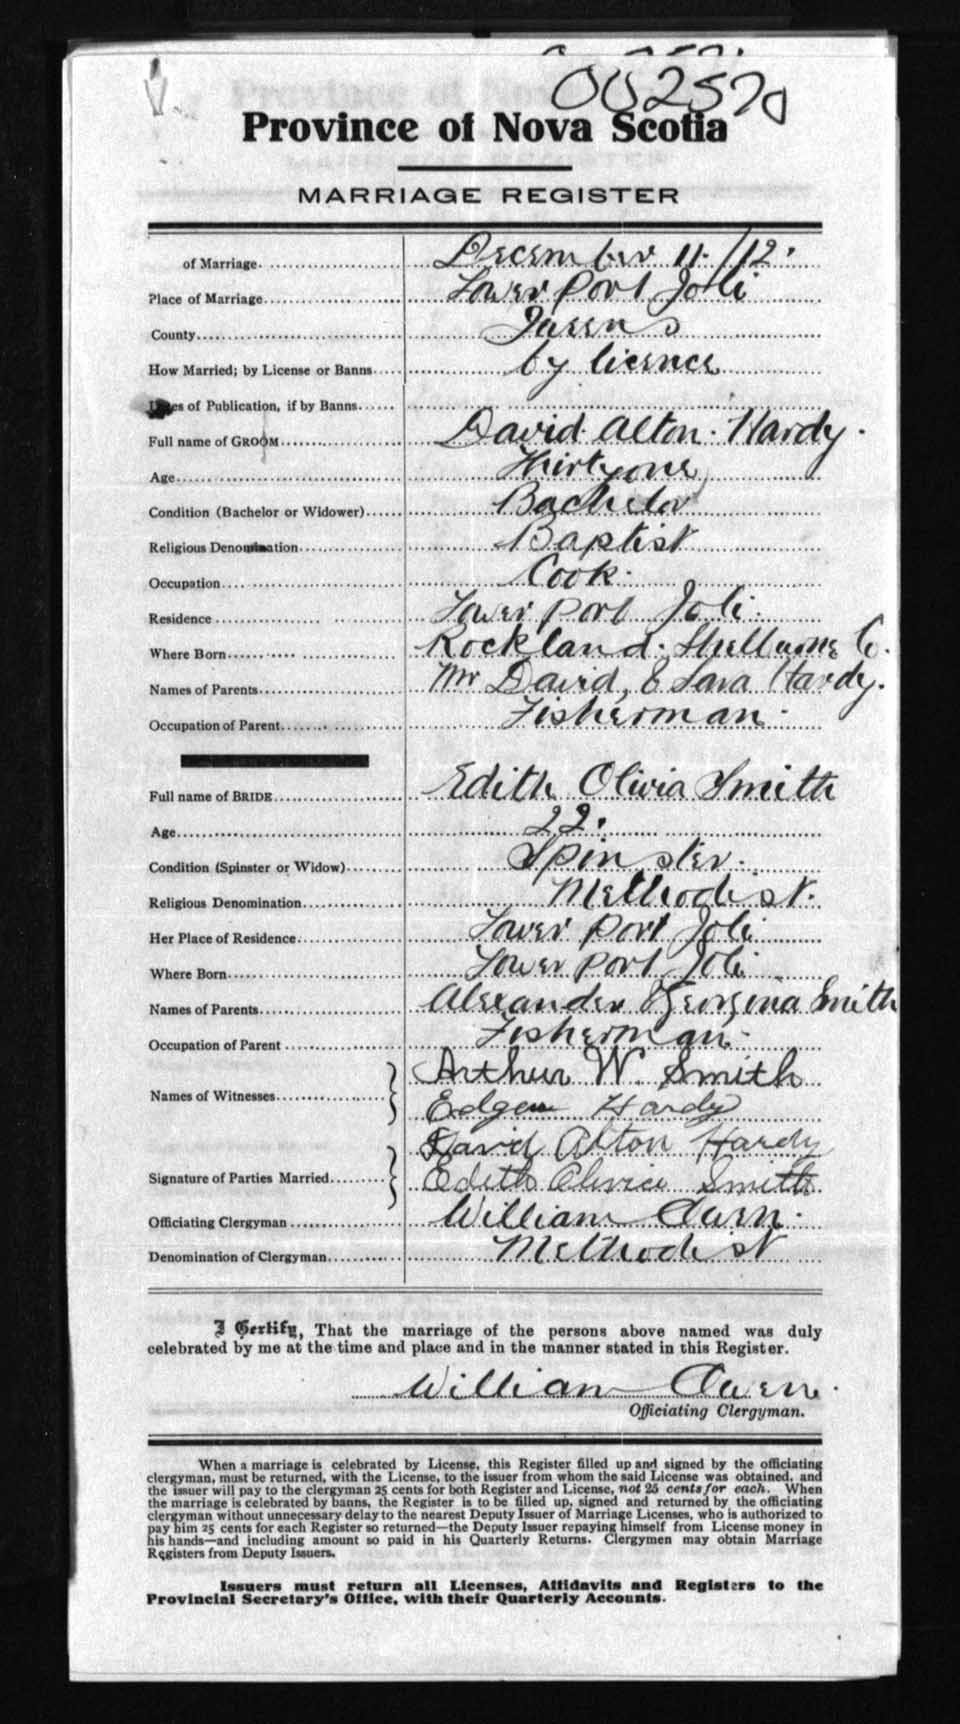 002570
Province of Nova Scotia
MARRIAGE REGISTER
of Marriage. December 11. /12.
Place of Marriage Lower Port Joli
County Queens
How Married; by License or Banns by licence
Dates of Publication, if by Banns
Full name of GROOM David Alton Hardy.
Age Thirty one
Condition (Bachelor or Widower) Bachelor
Religious Denomination Baptist
Occupation Cook.
Residence Lower Port Joli.
Where Born Rockland. Shelburne Co.
Names of Parents Mr David, & Sara Hardy.
Occupation of Parent Fisherman.
Full name of BRIDE Edith Olivia Smith
Age 22.
Condition (Spinster or Widow) Spinster.
Religious Denomination Methodist.
Her Place of Residence Lower Port Joli
Where Born Lower Port Joli
Names of Parents Alexander Georgina Smith
Occupation of Parent Fisherman.
Names of Witnesses Arthur W. Smith
Edgar Hardy
Signature of Parties Married David Alton Hardy
Edith Olivia Smith
Officiating Clergyman William Owen.
Denomination of Clergyman Methodist
I Certify, That the marriage of the persons above named was duly
celebrated by me at the time and place and in the manner stated in this Register.
William Owen.
Officiating Clergyman.
When a marriage is celebrated by License, this Register filled up and signed by the officiating
clergyman, must be returned, with the License, to the issuer from whom the said License was obtained, and
the issuer will pay to the clergyman 25 cents for both Register and License, not 25 cents for each. When
the marriage is celebrated by banns, the Register is to be filled up, signed and returned by the officiating
clergyman without unnecessary delay to the nearest Deputy Issuer of Marriage Licenses, who is authorized to
pay him 25 cents for each Register so returned—the Deputy Issuer repaying himself from License money in
his hands—and including amount so paid in his Quarterly Returns. Clergymen may obtain Marriage
Registers from Deputy Issuers.
Issuers must return all Licenses, Affidavits and Registers to the
Provincial Secretary's Office, with their Quarterly Accounts.